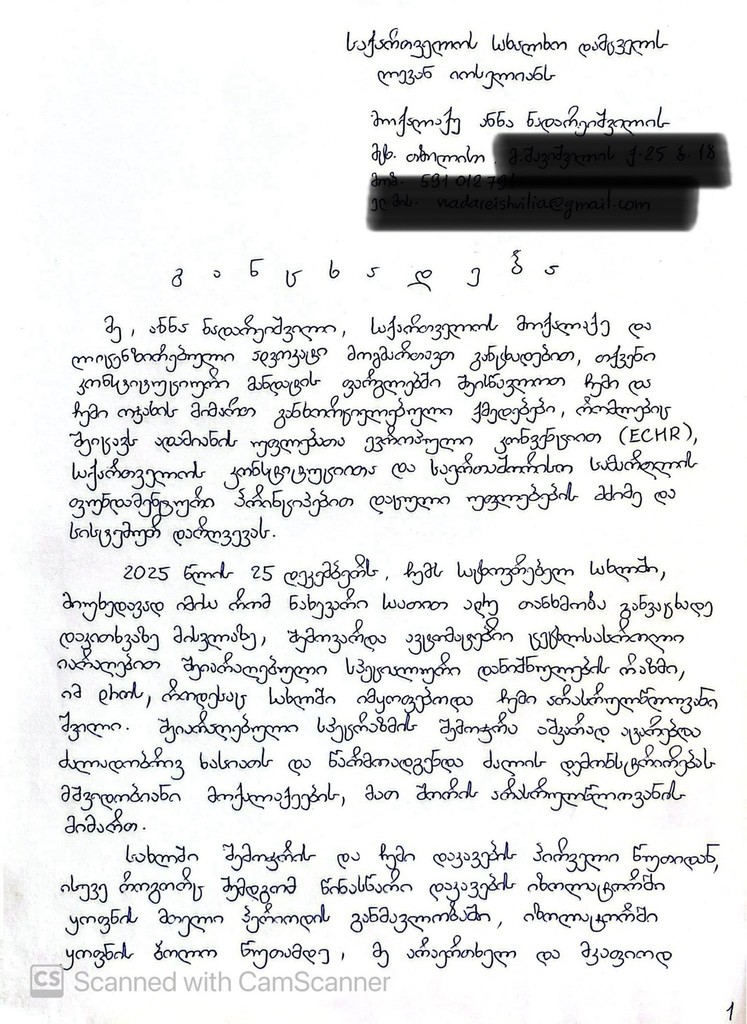 საქართველოს სახალხო დამცველს
ლევან იოსელიანს
მოქალაქე ანნა ნადარეიშვილის
მის. თბილისი
განცხადება
მე, ანნა ნადარეიშვილი, საქართველოს მოქალაქე და
ლიცენზირებული ადვოკატი მოგმართავთ განცხადებით, თქვენი
კონსტიტუციური მანდატის ფარგლებში შეისწავლოთ ჩემი და
ჩემი ოჯახის მიმართ განხორციელებული ქმედებები, რომლებიც
შეიცავს ადამიანის უფლებათა ევროპული კონვენციით (ECHR),
საქართველოს კონსტიტუციითა და საერთაშორისო სამართლის
ფუნდამენტური პრინციპებით დაცული უფლებების მძიმე და
სისტემურ დარღვევას.
2025 წლის 25 დეკემბერს, ჩემს საცხოვრებელ სახლში,
მიუხედავად იმისა რომ ნახევარი საათით ადრე თანხმობა განვაცხადე
დაკითხვაზე მისვლაზე, შემოვარდა ავტომატური ცეცხლსასროლი
იარაღებით შეიარაღებული სპეციალური დანიშნულების რაზმი,
იმ დროს, როდესაც სახლში იმყოფებოდა ჩემი არასრულწლოვანი
შვილი. შეიარაღებული სპეცრაზმის შემოჭრა აშკარად ატარებდა
ძალადობრივ ხასიათს და წარმოადგენდა ძალის დემონსტრირებას
მშვიდობიანი მოქალაქეების, მათ შორის არასრულწლოვანის
მიმართ.
სახლში შემოჭრის და ჩემი დაკავების პირველი წუთიდან,
ისევე როგორც შემდგომ წინასწარი დაკავების იზოლატორში
ყოფნის მთელი პერიოდის განმავლობაში, იზოლატორში
ყოფნის ბოლო წუთამდე, მე არაერთხელ და მკაფიოდ
CS Scanned with CamScanner
1